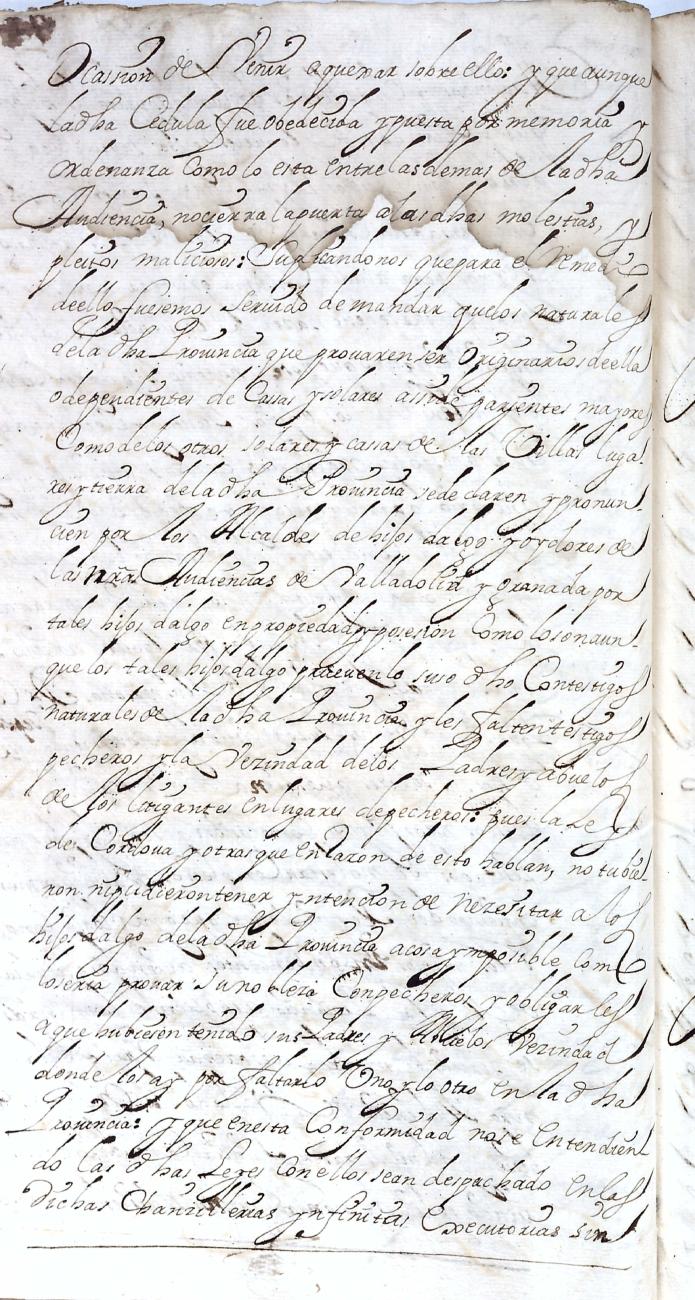 Ocassion de Venir aquexar sobre ello: y que aunque
la dha Cedula fue obedecida y puesta por memoria y
ordenanza como lo esta entre las demas de la dha
Audiencia, no cierra la puerta a las dhas molestias, y
pleitos maliciosos: Suplicandonos que para el Remedio
de ello fuesemos servido de mandar que los naturales
de la dha Provincia que provaren ser Originarios de ella
o dependientes de Casas y solares assi de parientes mayores
Como de los otros solares y casas de las Villas luga-
res y tierra de la dha Provincia se declaren y pronun-
cien por los Alcaldes de hijos dalgo y oydores de
las nras Audiencias de Valladolid y granada por
tales hijos dalgo en propiedad y posesion Como lo son aun-
que los tales hijos dalgo prueven lo suso dho Con testigos
naturales de la dha Provincia y les falten testigos
pecheros y la Vezindad de los Padres y abuelos
de los litigantes en lugares de pecheros: pues la Ley
de Cordova y otras que en razon de esto hablan, no tubie-
ron ni pudieron tener yntencion de nezesitar a los
hijos dalgo de la dha Provincia a cosa ymposible como
lo seria provar su nobleza Con pecheros y obligarles
a que hubiesen tenido sus Padres y Abuelos Vezindad
donde los ay por faltar lo Uno y lo otro en la dha
Provincia: y que en esta Conformidad no se Entendien-
do las dhas Leyes Con ellos se an despachado en las
dichas Chanzillerias ynfinitas Executorias sin